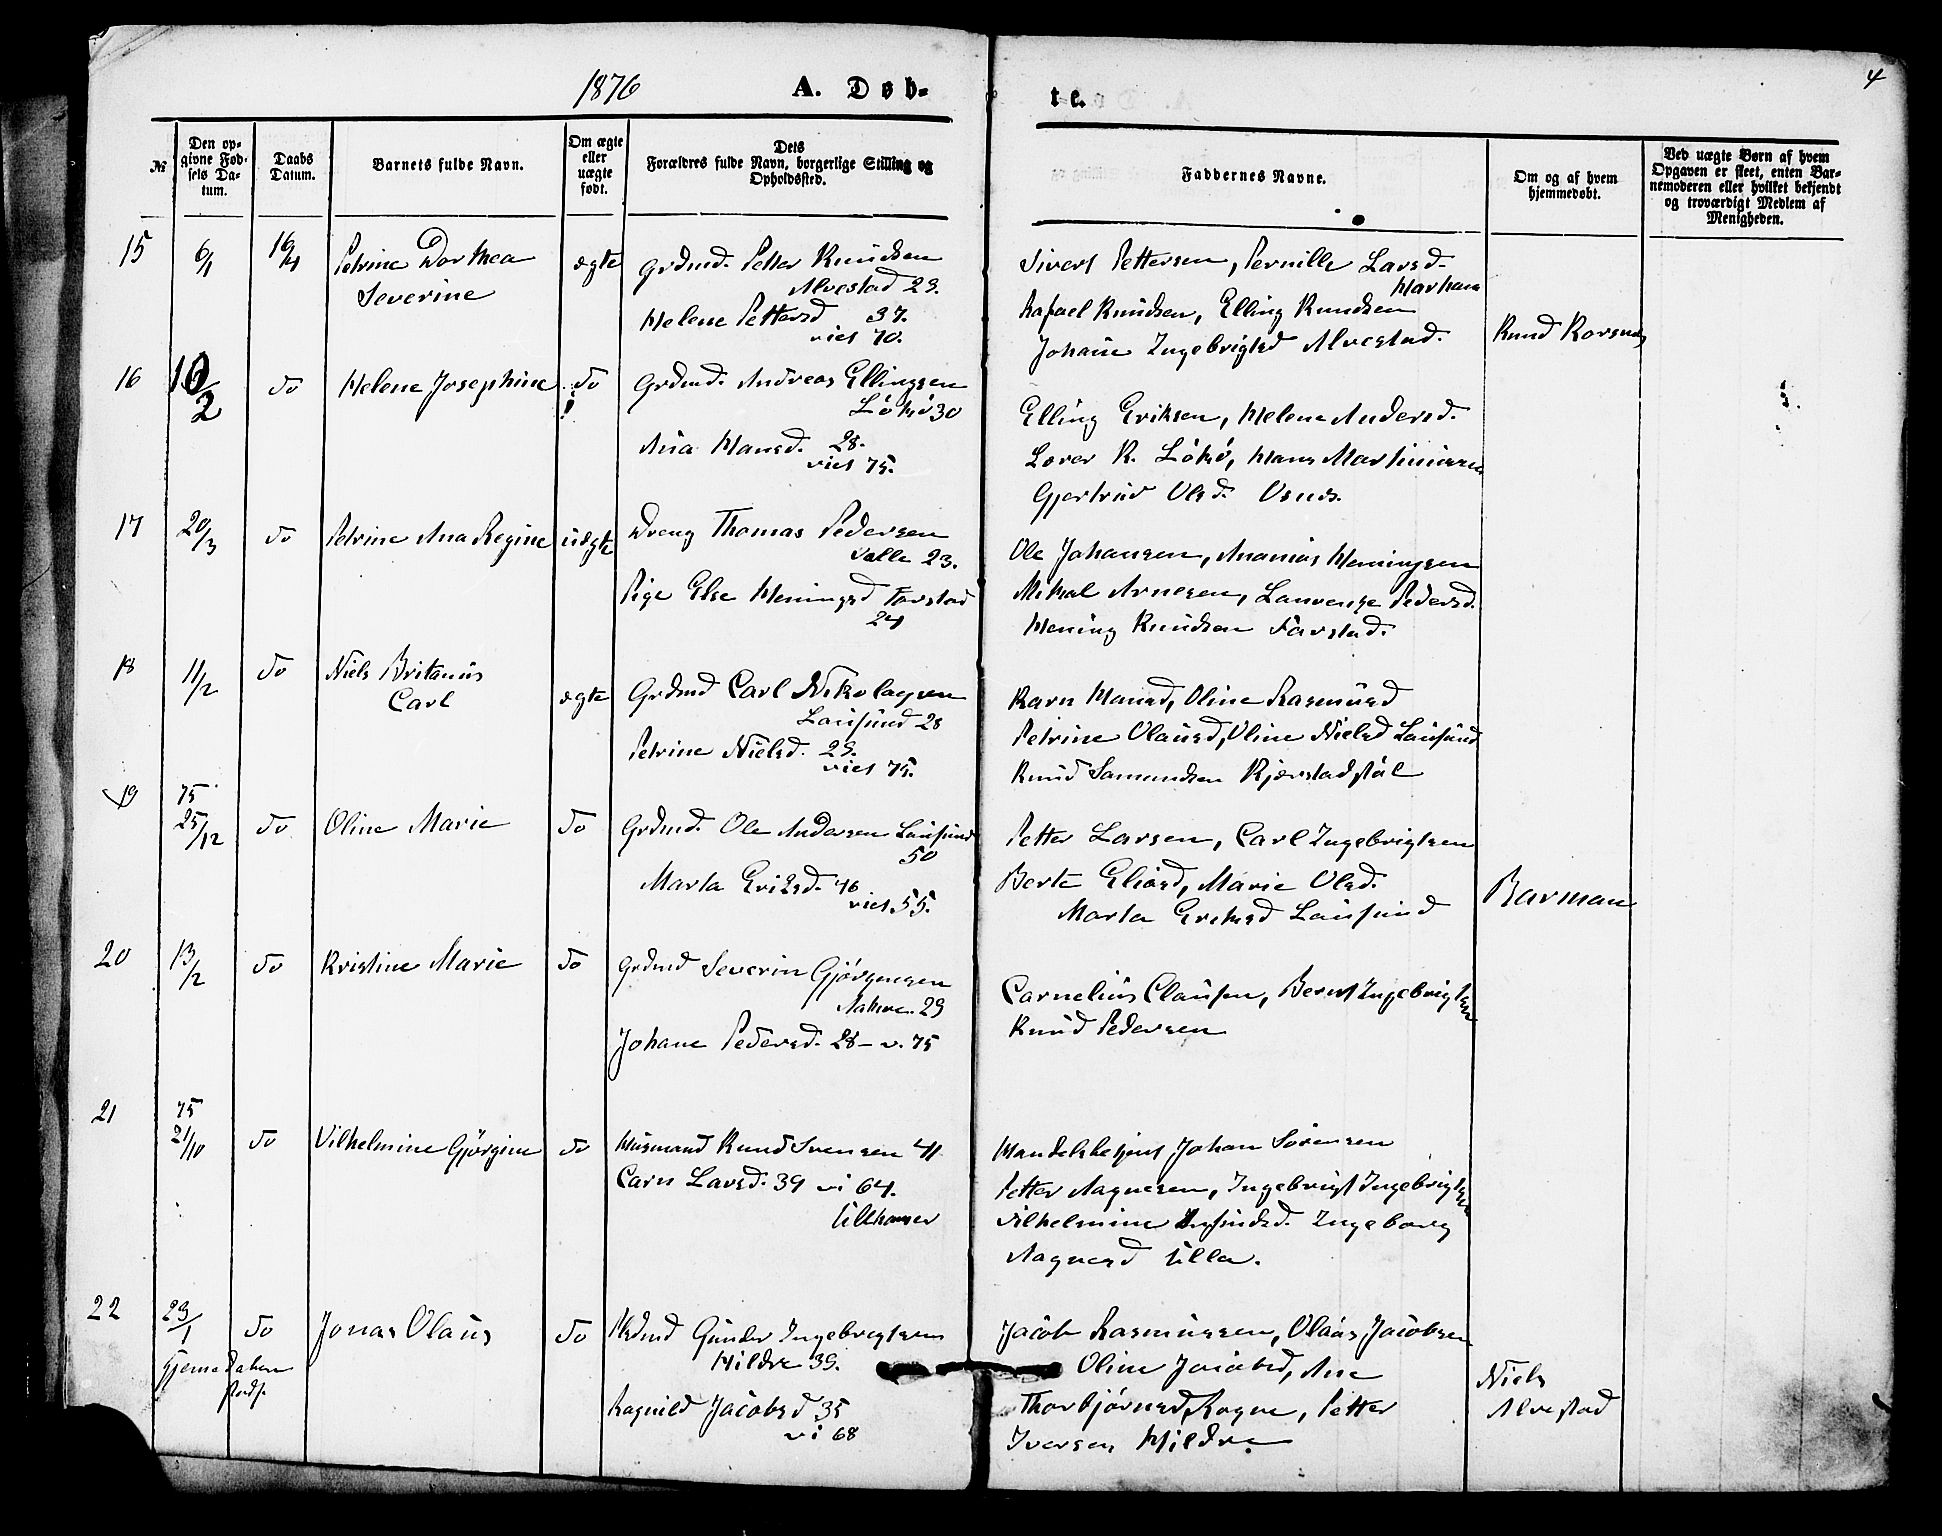 1876 A. Døb-
te.
4
№
Den op-
givne Fød-
sels Da-
tum.
Daabs
Datum.
Barnets fulde Navn.
Om ægte
eller
uægte
født.
Dets
Forældres fulde Navn, borgerlige Stilling og
Opholdssted.
Faddernes Navne.
Om og af hvem
hjemmedøbt.
Ved uægte Børn af hvem
Opgaven er skeet, enten Bar-
nemoderen eller hvilket bekjendt
og troværdigt Medlem af
Menigheden.
15 6/1 16/4 Petrine Dorthea
Severine
ægte
Grdmd. Petter Knudsen
Alvestad 23.
Helene Pettersd 37.
viet 70.
Sivert Pettersen, Pernille Larsd.
Harham
Rafael Knudsen, Elling Knudsen
Johane Ingebrigtsd Alvestad.
Knud Rorsnes
16 10/2 do Helene Josephine do
Grdmd. Andreas Ellingsen
Løkø 30
Ana Hansd. 28.
viet 75.
Elling Eriksen, Helene Andersd.
Lærer K. Løkø, Hans Marthinussen
Gjertrud Olsd.
17 20/3 do Petrine Ana Regine uægte
Dreng Thomas Pedersen
Valle 23.
Pige Else Heningsd Farstad
24
Ole Johansen, Ananias Heningsen
Mikal Arnesen, Laurense Pedersd.
Hening Knudsen Farstad.
18 11/2 do Niels Britanus
Carl
ægte
Grdmd Carl Nikolaysen
Lausund 28
Petrine Nielsd. 23.
viet 75.
Karn Hansd, Oline Rasmusd
Petrine Olausd, Oline Nielsd Lausund
Knud Samundsen Kjærstadstøl
19 75
25/12 do Oline Marie do
Grdmd. Ole Andersen Lausund
50
Marta Eriksd. 46
viet 55.
Petter Larsen, Carl Ingebrigtsen
Berte Eliasd, Marie Olsd.
Marta Eriksd Lausund
Barman
20 13/2 do Kristine Marie do
Grdmd Severin Gjørgensen
29
Johane Pedersd. 28 - v. 75
Carnelius Clausen, Bernt Ingebrigtsen
Knud Pedersen
21 75
21/10 do Vilhelmine Gjørgine do
Husmand Knud Svensen 41
Carn Larsd. 39 vi 64.
Ullhammer
Handelsbetjent Johan Sørensen
Petter Aagnesen, Ingebrigt Ingebrigtsen
Vilhelmine Ingeborg
Aagnesd Ulla.
22 23/1 do Jonas Olaus do
Hjemedaben
stadf.
Grdmd Gunder Ingebrigtsen
Hildre 39.
Ragnild Jacobsd 35
vi 68
Jacob Rasmussen, Olaus Jacobsen
Oline Jacobsd, Ane
Thorbjørnsd, Rogne, Petter
Iversen Hildre
Niels
Alvestad